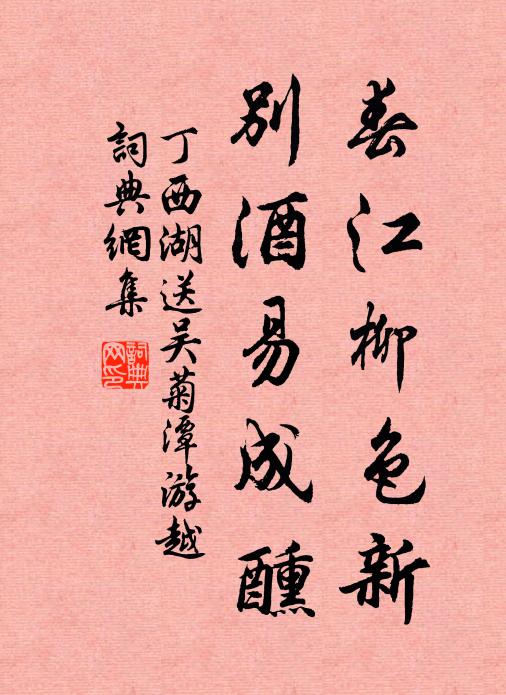 春江柳色新
别酒易成醺
丁西湖送吴菊潭游越
詞典網集
詞典網印